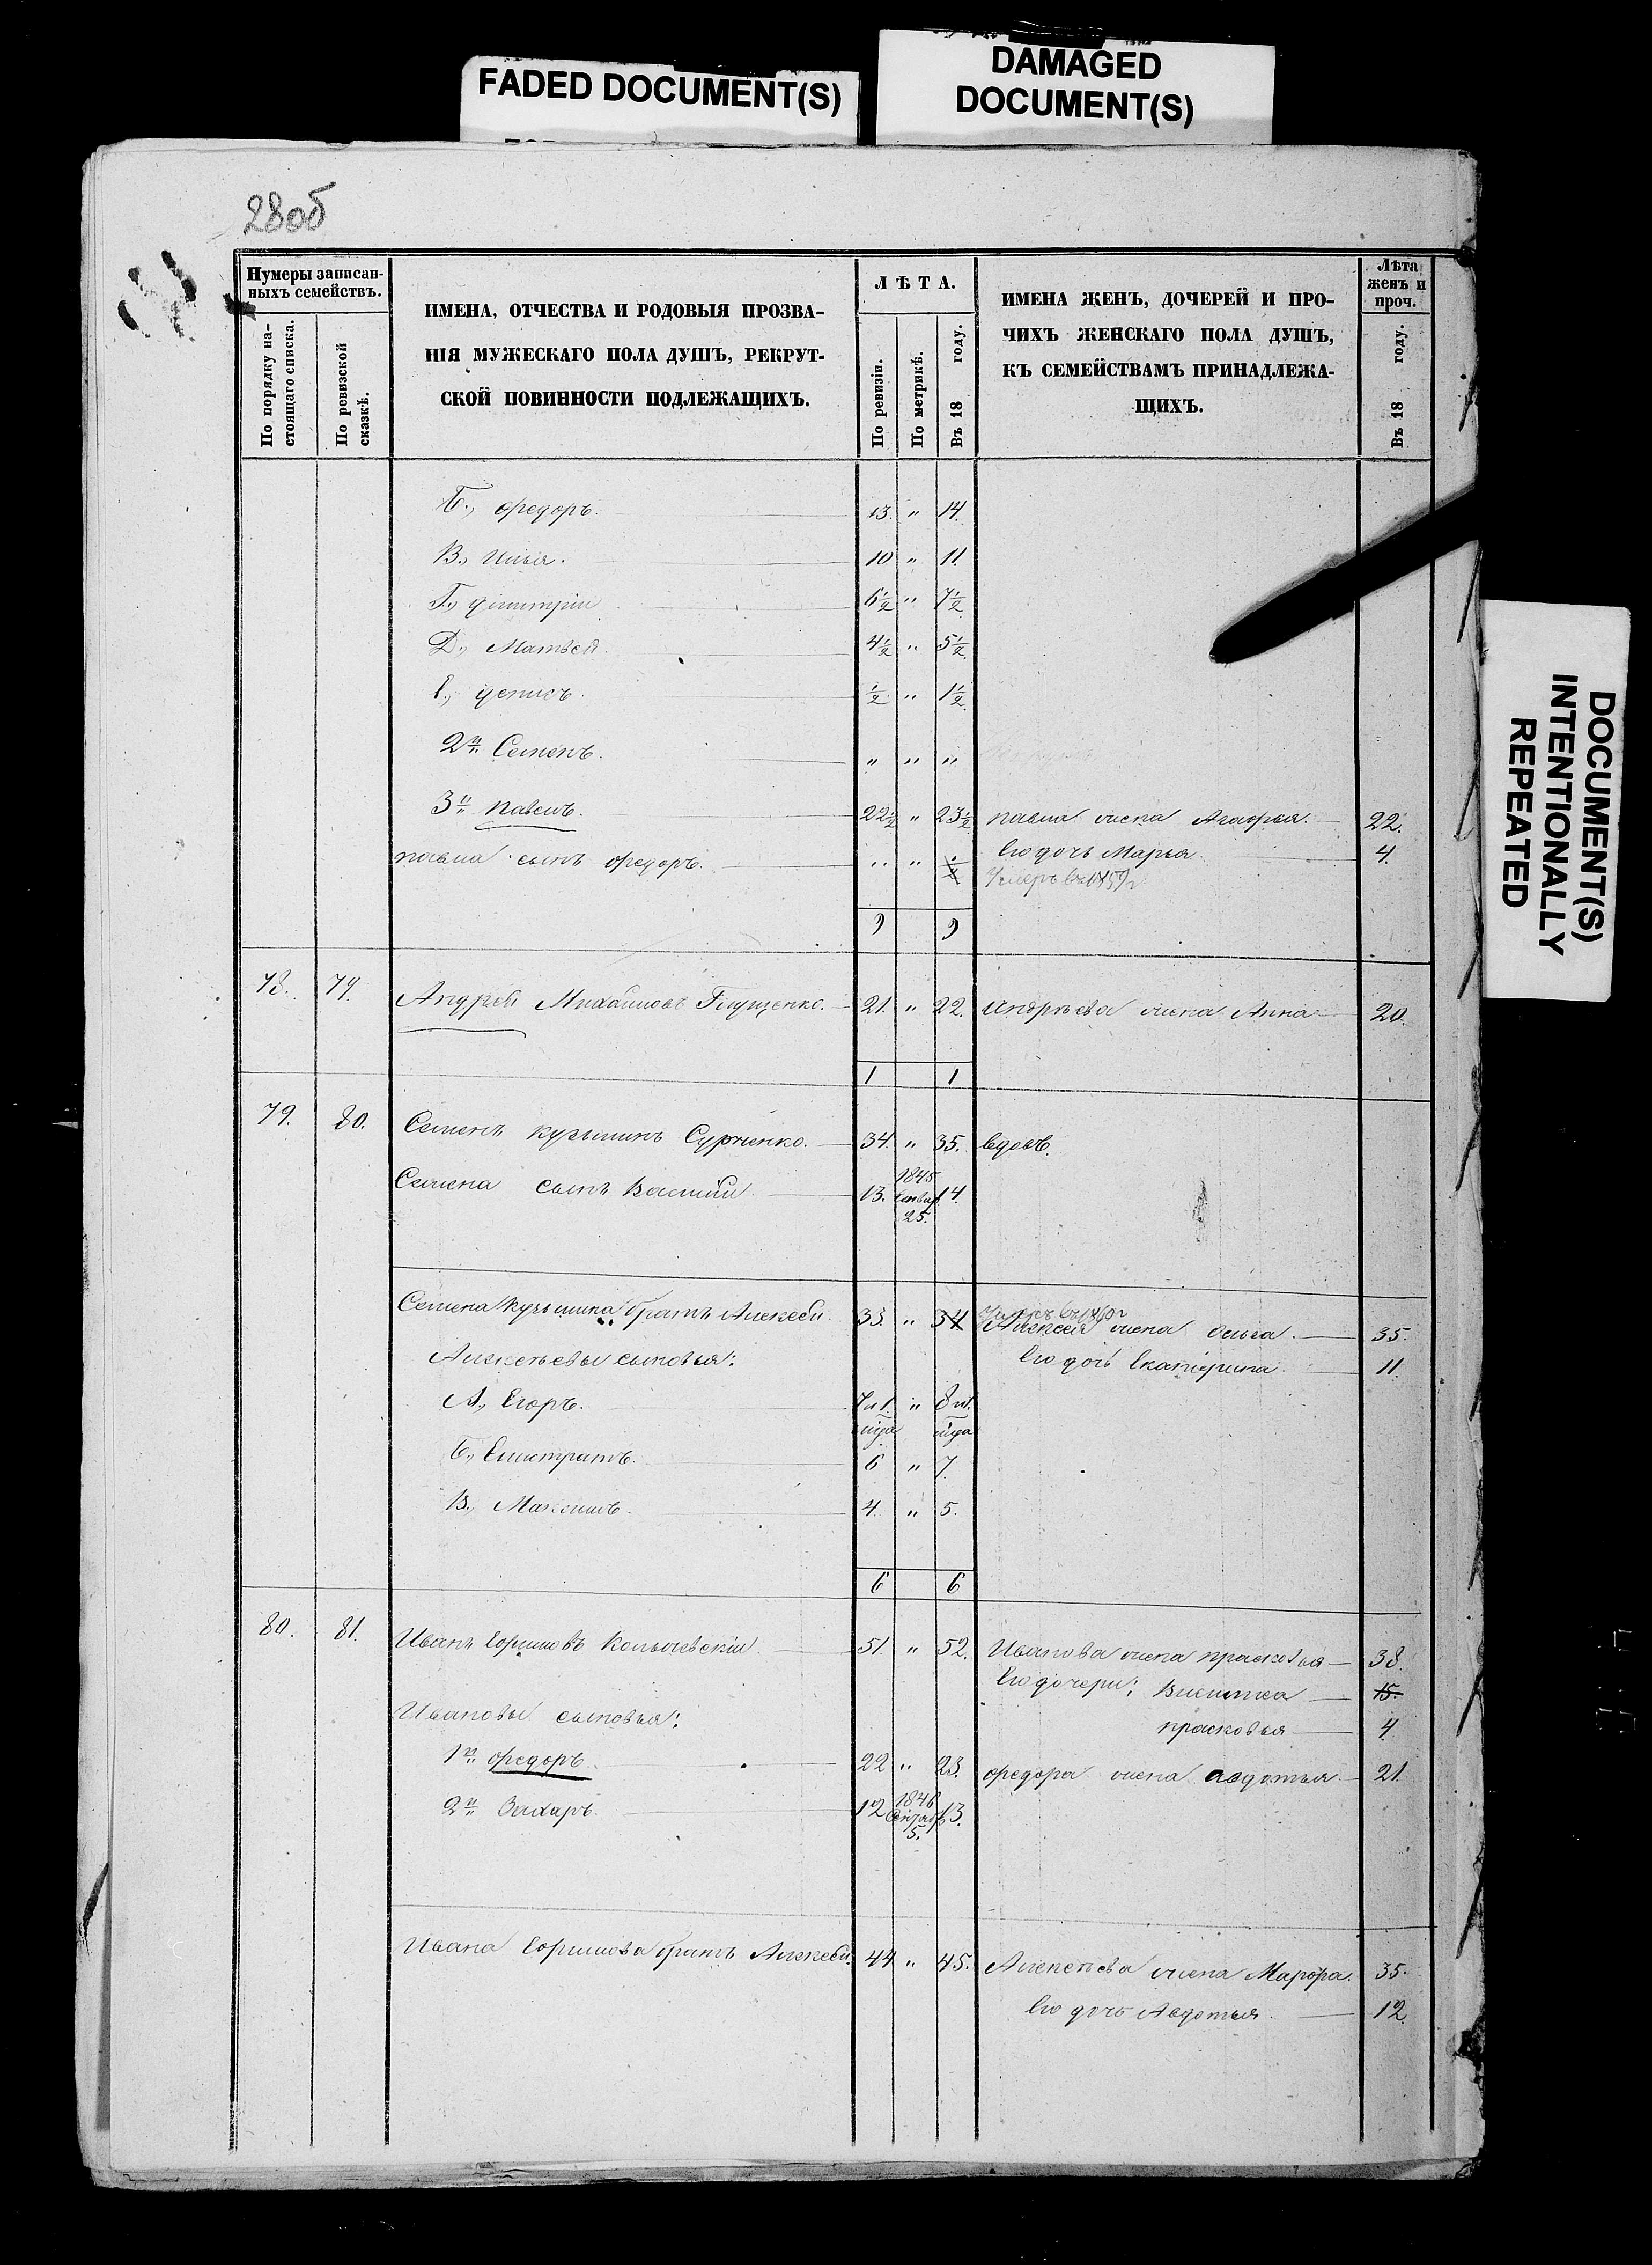 FADED DOCUMENT(S)
DAMAGED
DOCUMENT(S)
28об
Нумеры записан-
ныхъ семействъ.
По порядку на-
стоящаго списка.
По ревизской
сказкѣ.
ИМЕНА, ОТЧЕСТВА И РОДОВЫЯ ПРОЗВА-
НІЯ МУЖЕСКАГО ПОЛА ДУШЪ, РЕКРУТ-
СКОЙ ПОВИННОСТИ ПОДЛЕЖАЩИХЪ.
ЛѢТА.
По ревизіи.
По метрикѣ.
Въ 18 году.
ИМЕНА ЖЕНЪ, ДОЧЕРЕЙ И ПРО-
ЧИХЪ ЖЕНСКАГО ПОЛА ДУШЪ,
КЪ СЕМЕЙСТВАМЪ ПРИНАДЛЕЖА-
ЩИХЪ.
Лѣта
женъ и
проч.
Въ 18 году.
Б., Федоръ. 13. " 14.
В., Илья. 10 " 11.
Г., Димитрій 6½ " 7½
Д., Матвей. 4½ " 5½
Е., Денисъ. ½ " 1½
2й Семенъ. " " "
3й Павелъ. 22½ " 23½ Павла жена Агафья. 22.
Павла сынъ Федоръ. " " Его дочь Марья 4.
Умеръ въ 1859г
9 9
78. 79. Андрей Михайловъ Глущенко. 21. " 22. Андрѣева жена Анна 20.
1 1
79. 80. Семенъ Кузьминъ 34. " 35. вдовъ.
Семена сынъ Василій 13. 1845 Январ 25. 14.
Семена Кузьмина братъ Алексей. 33. " 34 Умеръ въ
Алексея жена Ольга. 35.
Алексѣевы сыновья: Его дочь Екатерина 11.
А., Егоръ. 7 и 1. " 8 и 1.
Б., Елистратъ. 6 " 7.
В., Максимъ. 4. " 5.
6 6
80. 81. Иванъ 51. " 52. Иванова жена Прасковья 38.
Его дочери: 15.
Ивановы сыновья: Прасковья 4
1й Федоръ. 22 " 23. Федора жена Авдотья. 21.
2й Захаръ. 12 1846 5. 13.
Ивана братъ Алексей. 44 " 45. Алексѣева жена Марфа. 35.
Его дочь Авдотья. 12.
DOCUMENT(S)
INTENTIONALLY
REPEATED